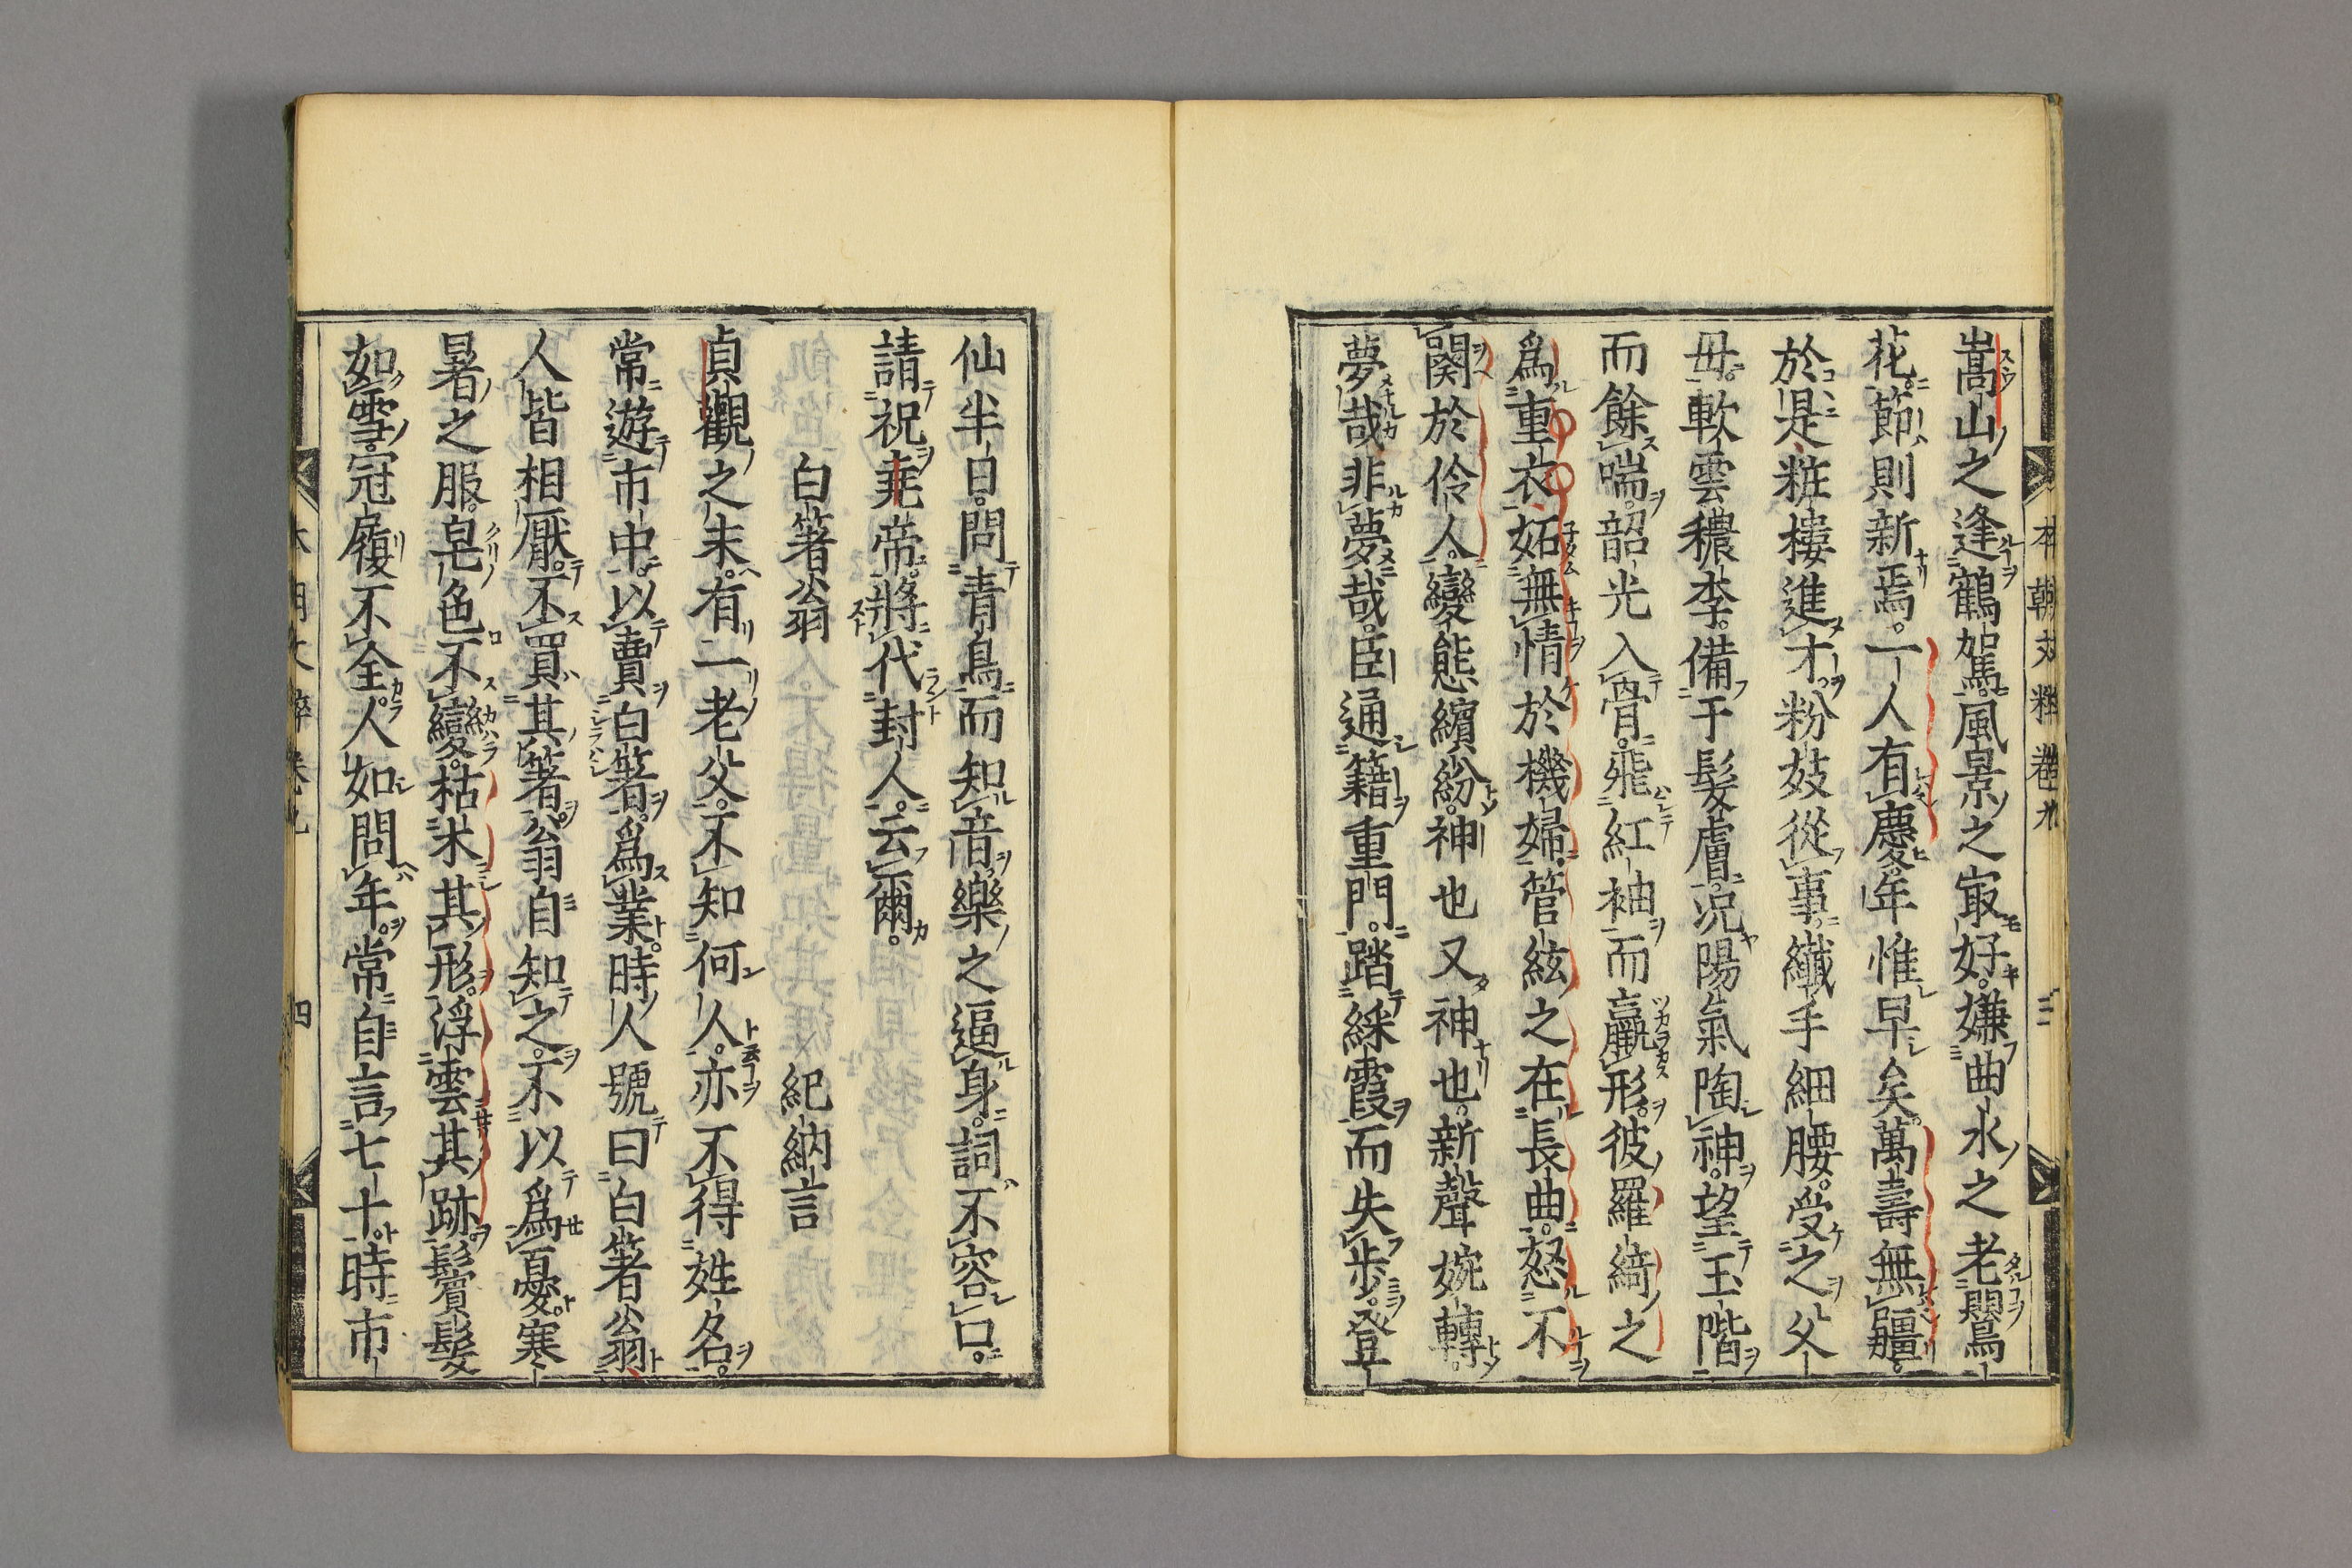 本朝文粹卷九 三
嵩山之逢鶴駕風景之冣好嫌曲水之老鸎
花節則新焉一人有慶年惟早矣萬壽無疆
於是粧樓進才粉妓從事纖手細腰受之父
母軟雲穠李備于髮膚况陽氣陶神望玉階
而餘喘韶光入骨飛紅袖而羸形彼羅綺之
爲重衣妬無情於機婦管絃之在長曲怒不
闋於伶人變態繽紛神也又神也新聲婉轉
夢哉非夢哉臣通籍重門踏綵霞而失步登
仙半日問青鳥而知音樂之逼身詞不容口
請祝尭帝將代封人云爾
白箸翁 紀納言
貞觀之末有一老父不知何人亦不得姓名
常遊市中以賣白箸爲業時人號曰白箸翁
人皆相厭不買其箸翁自知之不以爲憂寒
暑之服皂色不變枯木其形浮雲其跡鬢髮
如雪冠履不全人如問年常自言七十時市
本朝文粹卷九 四